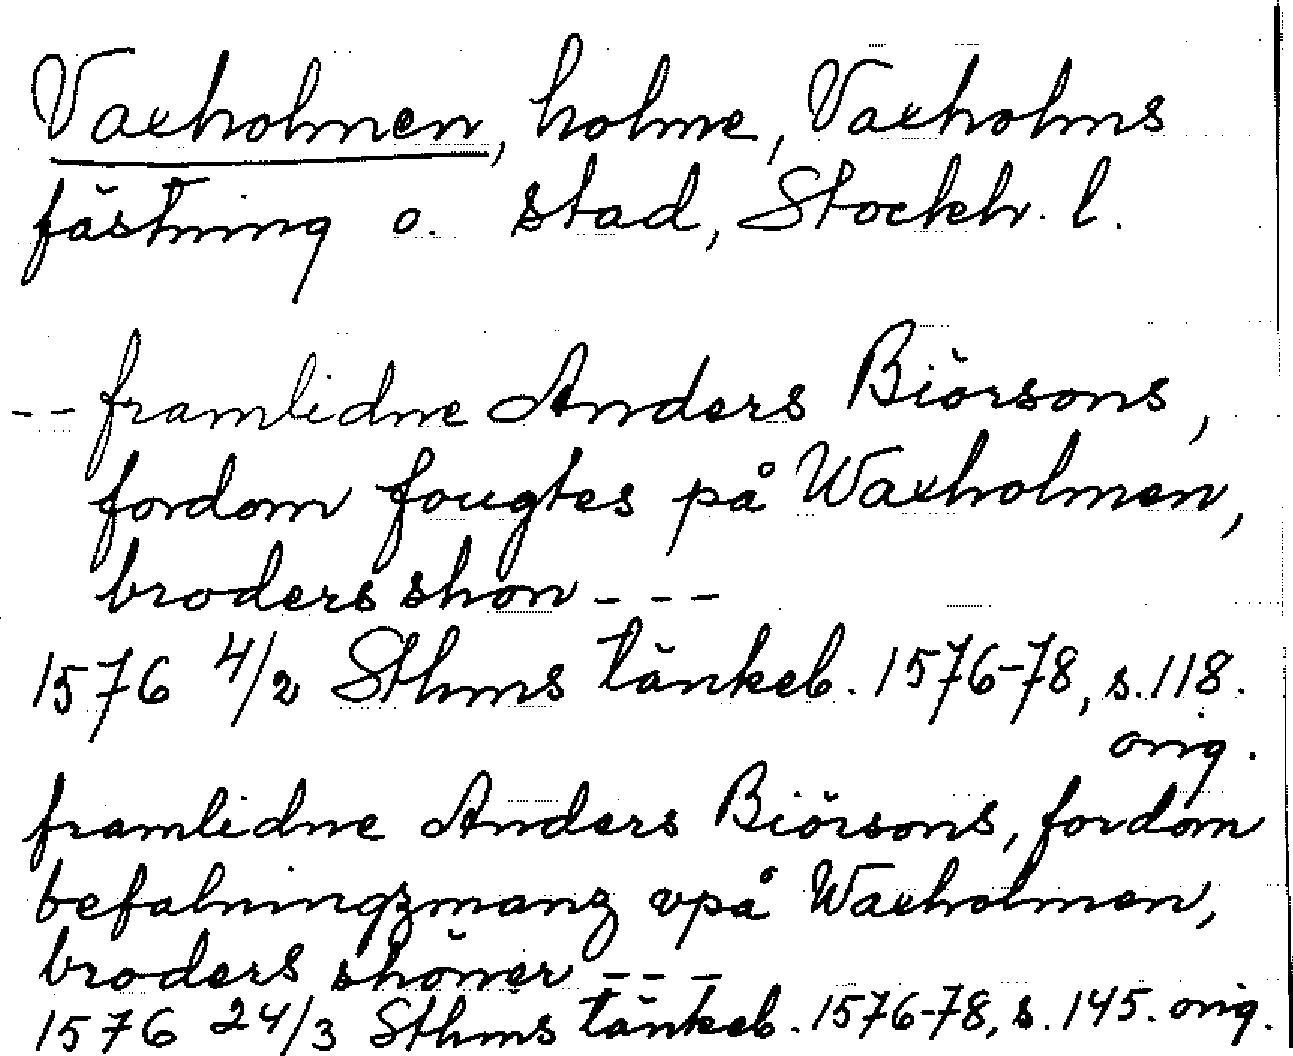 Vaxholmen, holme, Vaxholms
fästning o. stad, Stockh. l.
-- framlidne Anders Biörsons,
fordom fougtes på Waxholmen,
broders shon ---
1576 4/2 Sthms tänkeb. 1576-78, s. 118.
orig.
framlidne Anders Biörsons, fordom
befalningzmanz vpå Waxholmen,
broders shöner ---
1576 24/3 Sthms tänkeb. 1576-78, s. 145. orig.